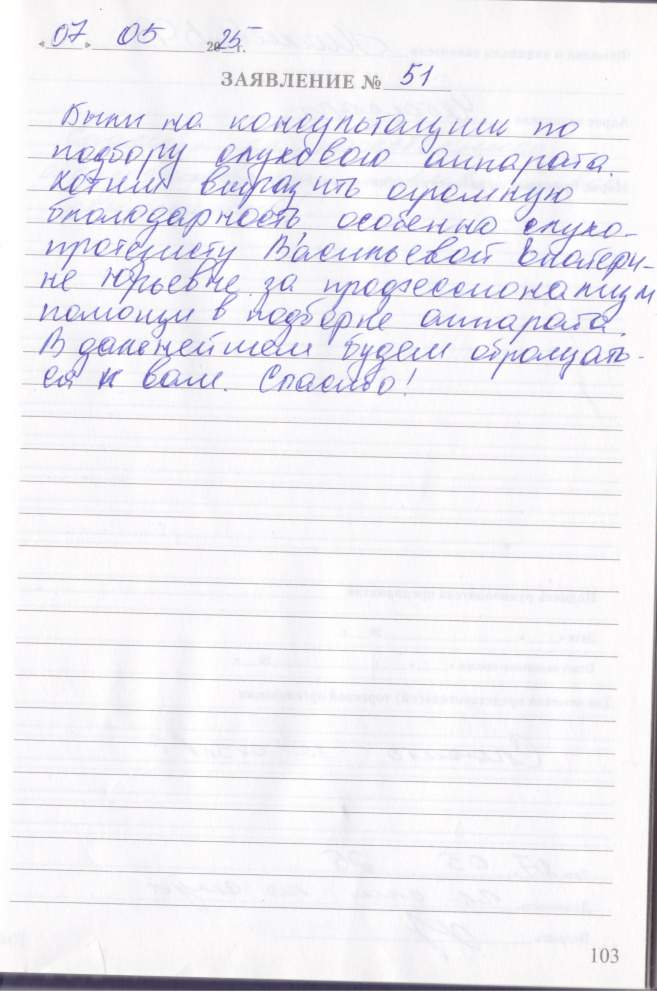 «07» 05 2025 г.
ЗАЯВЛЕНИЕ № 51
Были на консультации по
подбору слухового аппарата.
Хотим выразить огромную
благодарность, особенно слухо-
протезисту Васильевой Екатери-
не Юрьевне за профессионализм
помощи в подборке аппарата.
В дальнейшем будем обращать-
ся к вам. Спасибо!
103